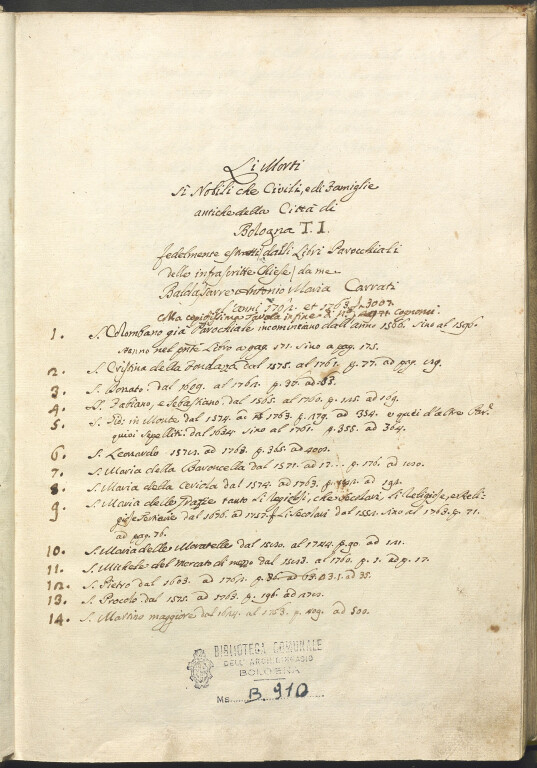 Li Morti
Sì Nobili che Civili, e di Famiglie
antiche della Città di
Bologna T. I.
fedelmente estratti dalli Libri Parocchiali
delle infrascritte Chiese, da me
Baldassarre Antonio Maria Carrati
l'anni et 1763
Ma copiosissima Tavola in fine di N.° cognomi
1. S. Colombano già Parochiale incominciano dall'anno 1566. sino al 1596.
sono nel pnte Libro a pag. 171. sino a pag. 175.
2. S. Cristina della Fondazza dal 1575. al 1761. p. 77. ad pag.
3. S. Donato. dal 1609. al 1762. p. 36 ad
4. S. Fabiano, e Sebastiano dal 1565. al 1760. p. 145. ad 169.
5. S. Gio: in Monte dal 1574. al 1763. p. 179. ad 354. e quei d'altre Par.e
quivi sepelliti: dal 1624 sino al 1761. p. 355. ad 364.
6. S. Leonardo al 1763. p. 365. ad
7. S. Maria della Baroncella dal 1571. ad 17... p. 176. ad
8. S. Maria della Ceriola dal 1574. ad 1763. p. ad
9. S. Maria delle Grazie tanto li Religiosi, che Secolari. li Religiose, e Reli-
dal 1676. ad 1757. li Secolari dal 1551. sino al 1763. p. 71.
ad pag. 76.
10. S. Maria delle Muratelle dal al 1744. p. 90. ad 141.
11. S. Michele del Mercato di mezzo dal al 1760. p. 1. ad p. 17.
12. S. Pietro dal 1603. al 1761. p. ad 35.
13. S. Procolo dal 1575. al 1763. p. 196. ad
14. S. Martino maggiore dal 1624. al 1763. p. 409. ad 500.
BIBLIOTECA COMUNALE
DELL' ARCHIGINNASIO
BOLOGNA
Ms. B. 910